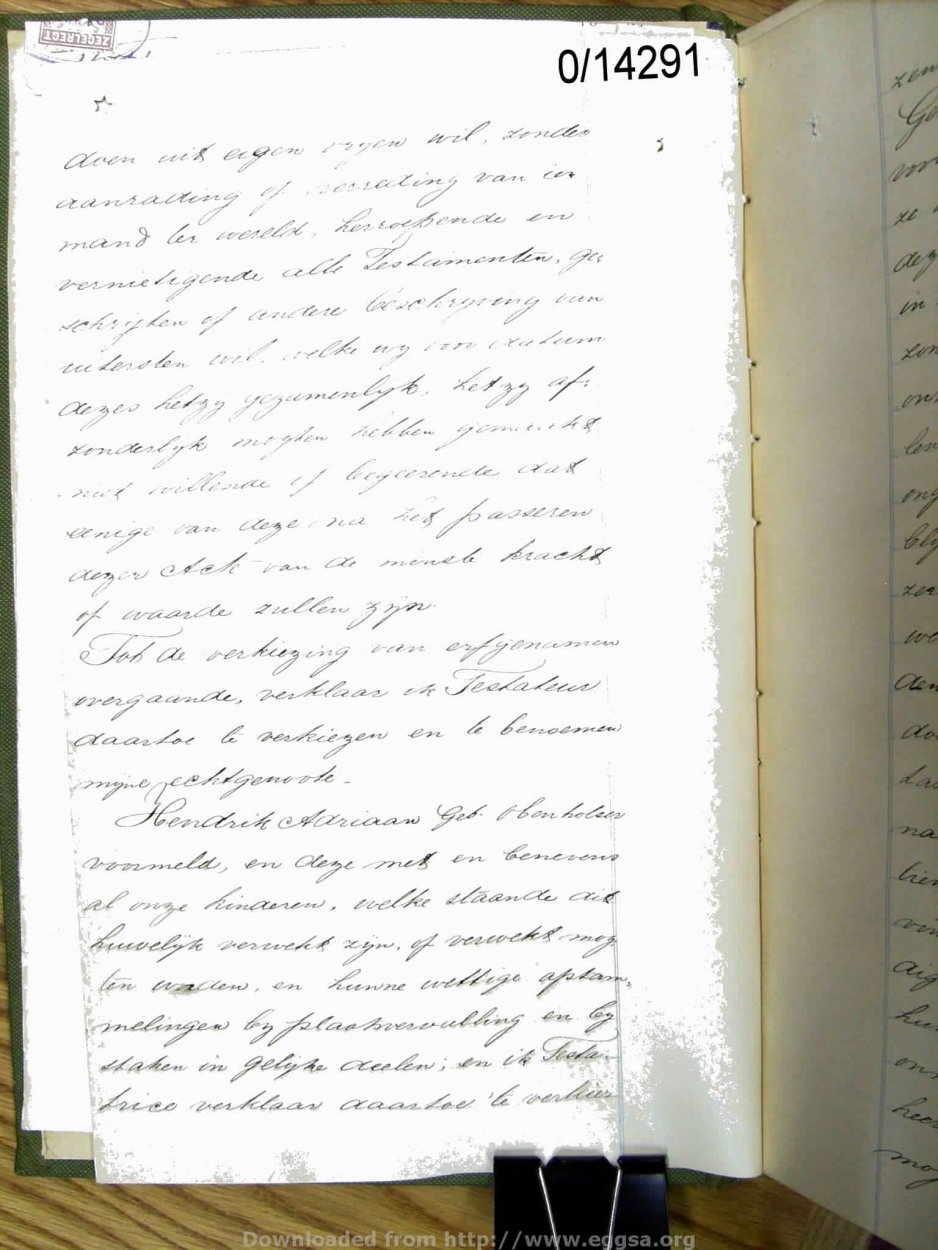 ZEGELREGT
0/14291
doen uit eigen vryen wil, zonder
aanrading of verleiding van ie
mand ter wereld, herroepende en
vernietigende alle Testamenten, ge
schriften of andere beschryving van
uitersten wil, welke wy voor datum
dezes hetzy gezamenlyk, hetzy af
zonderlyk mogten hebben gemaakt
niet willende of begeerende dat
eenige van deze na het passeren
dezer Acte van de minste kracht
of waarde zullen zyn.
Tot de verkiezing van erfgenamen
overgaande, verklaar ik Testateur
daartoe te verkiezen en te benoemen
myne echtgenoote
Hendrik Adriaan Geb. Obenholser
voormeld, en deze met en benevens
al onze kinderen, welke staande dit
huwelyk verwekt zyn, of verwekt mog
ten worden, en hunne wettige afstam
melingen by plaatsvervulling en by
staken in gelyke deelen; en ik Testa
trice verklaar daartoe te verkie
zen
voor
ze
dez
in
zon
on
len
ong
bly
zee
we
den
do
na
hee
mog
Downloaded from http://www.eggsa.org